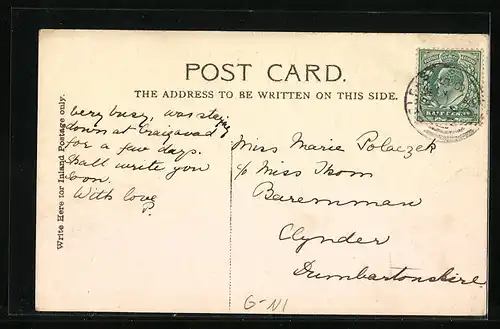 POST CARD.
THE ADDRESS TO BE WRITTEN ON THIS SIDE.
Write Here for Inland Postage only.
very busy, was staying
down at Craigavad
for a few days.
Shall write you
soon.
With love
P.
Miss Marie Polaczek
c/o Miss Thom
Baremman
Clynder
Dumbartonshire
HALFPENNY
G-NI